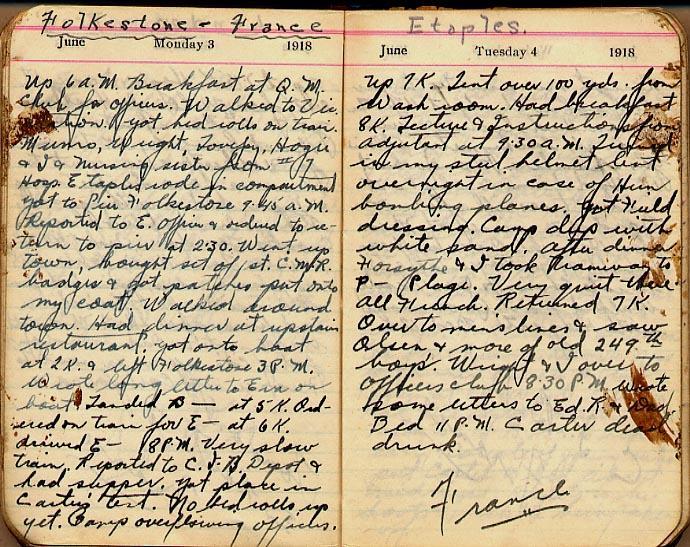 Folkestone - France
June Monday 3 1918
Up 6 A.M. Breakfast at Q.M.
Club for officers. Walked to Vic.
station. Got bed rolls on train.
Munro, Wright, Hogie
& I & Nursing sister from # 7
Hosp. Etaples rode in compartment
got to Pier Folkestone 9.45 A.M.
Reported to E. office & ordered to re-
turn to pier at 2:30. Went up
town, bought set of 1st. C.M.R.
badges & got patches put onto
my coat. Walked around
town. Had dinner at upstairs
restaurant. Got onto boat
at 2K. & left Folkestone 3 P.M.
Wrote long letter to Em on
boat. Landed B— at 5K. Ord-
ered on train for E— at 6K.
arrived E— 8 P.M. Very slow
train. Reported to C.I.B. Depot &
had supper. Got place in
Carter's tent. No bed rolls up
yet. Camp overflowing officers.
Etaples.
June Tuesday 4 1918
Up 7K. Tent over 100 yds. from
Wash room. Had breakfast
8K. Lecture & Instructions from
adjutant at 9.30 A.M. Turned
in my steel helmet lent
overnight in case of Hun
bombing planes. Got Field
dressing. Camp deep with
white sand. After dinner
Forsythe & I took tramway to
P— Plage. Very quiet there
all French. Returned 7K.
Over to men's lines & saw
Olsen & more of old 249th
boys. Wright & I over to
officers club 8:30 P.M. Wrote
some letters to Ed. R. & Dad
Bed 11 P.M. Carter dead
drunk.
France